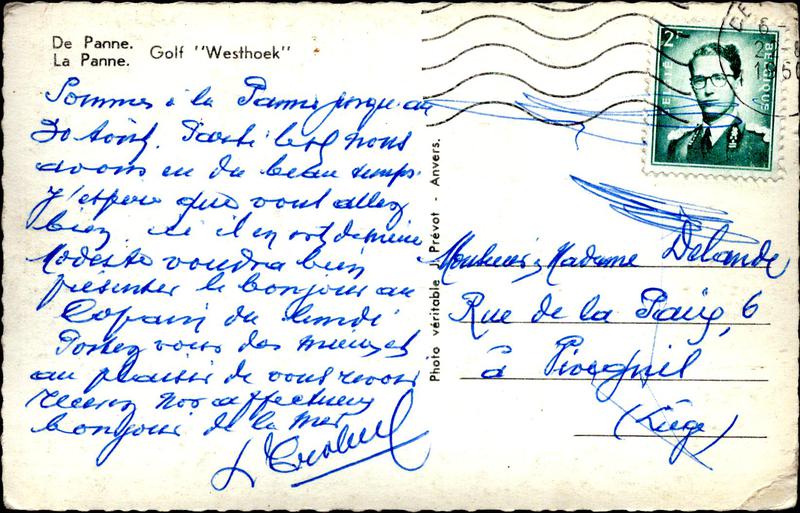 De Panne.
La Panne. Golf "Westhoek"
Sommes à la Panne jusqu'au
30 Août. nous
avons eu du beau temps
J'espère que vous allez
bien ici il en est de même
Modeste voudra bien
présenter le bonjour au
Copain du lundi
Portez vous des mieux et
au plaisir de vous revoir
recevez nos affectueux
bonjour de la Mer
Photo véritable Prévot - Anvers.
2F
BELGIË BELGIQUE
Monsieur & Madame Delande
Rue de la Paix, 6
à
(Liège)